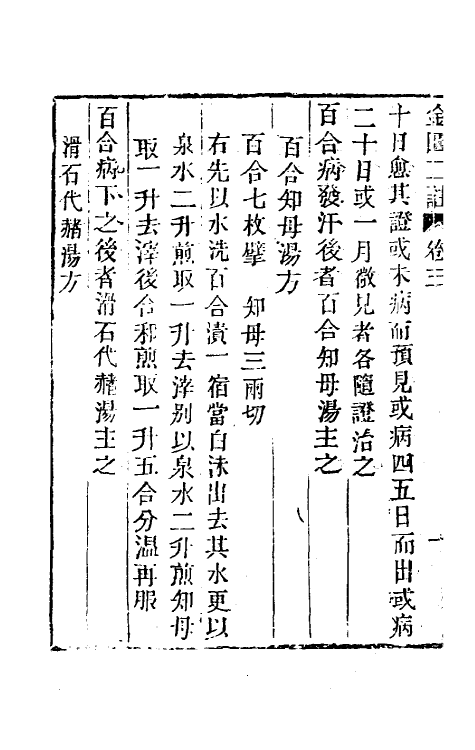 金匱二註 卷三 一
十日愈其證或未病而預見或病四五日而出或病
二十日或一月微見者各隨證治之
百合病發汗後者百合知母湯主之
百合知母湯方
百合七枚擘 知母三兩切
右先以水洗百合漬一宿當白沫出去其水更以
泉水二升煎取一升去滓别以泉水二升煎知母
取一升去滓後合和煎取一升五合分温再服
百合病下之後者滑石代赭湯主之
滑石代赭湯方